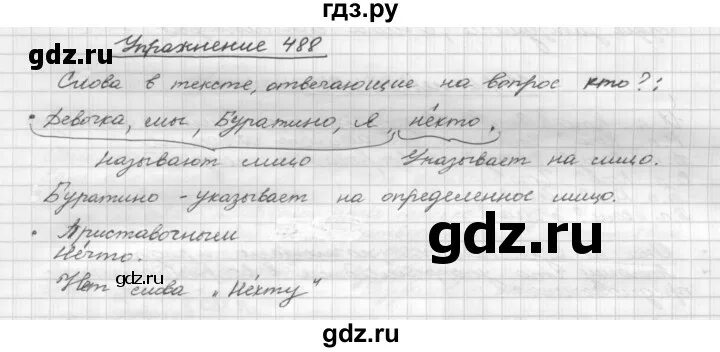 гдз.ру
Упражнение 488
Слова в тексте, отвечающие на вопрос кто?:
• Девочка, мы, Буратино, я, не́кто.
называют лицо Указывает на лицо.
Буратино - указывает на определенное лицо.
• Приставочным
Не́что.
Нет слова „Не́кту"
gdz.ru
gdz.ru